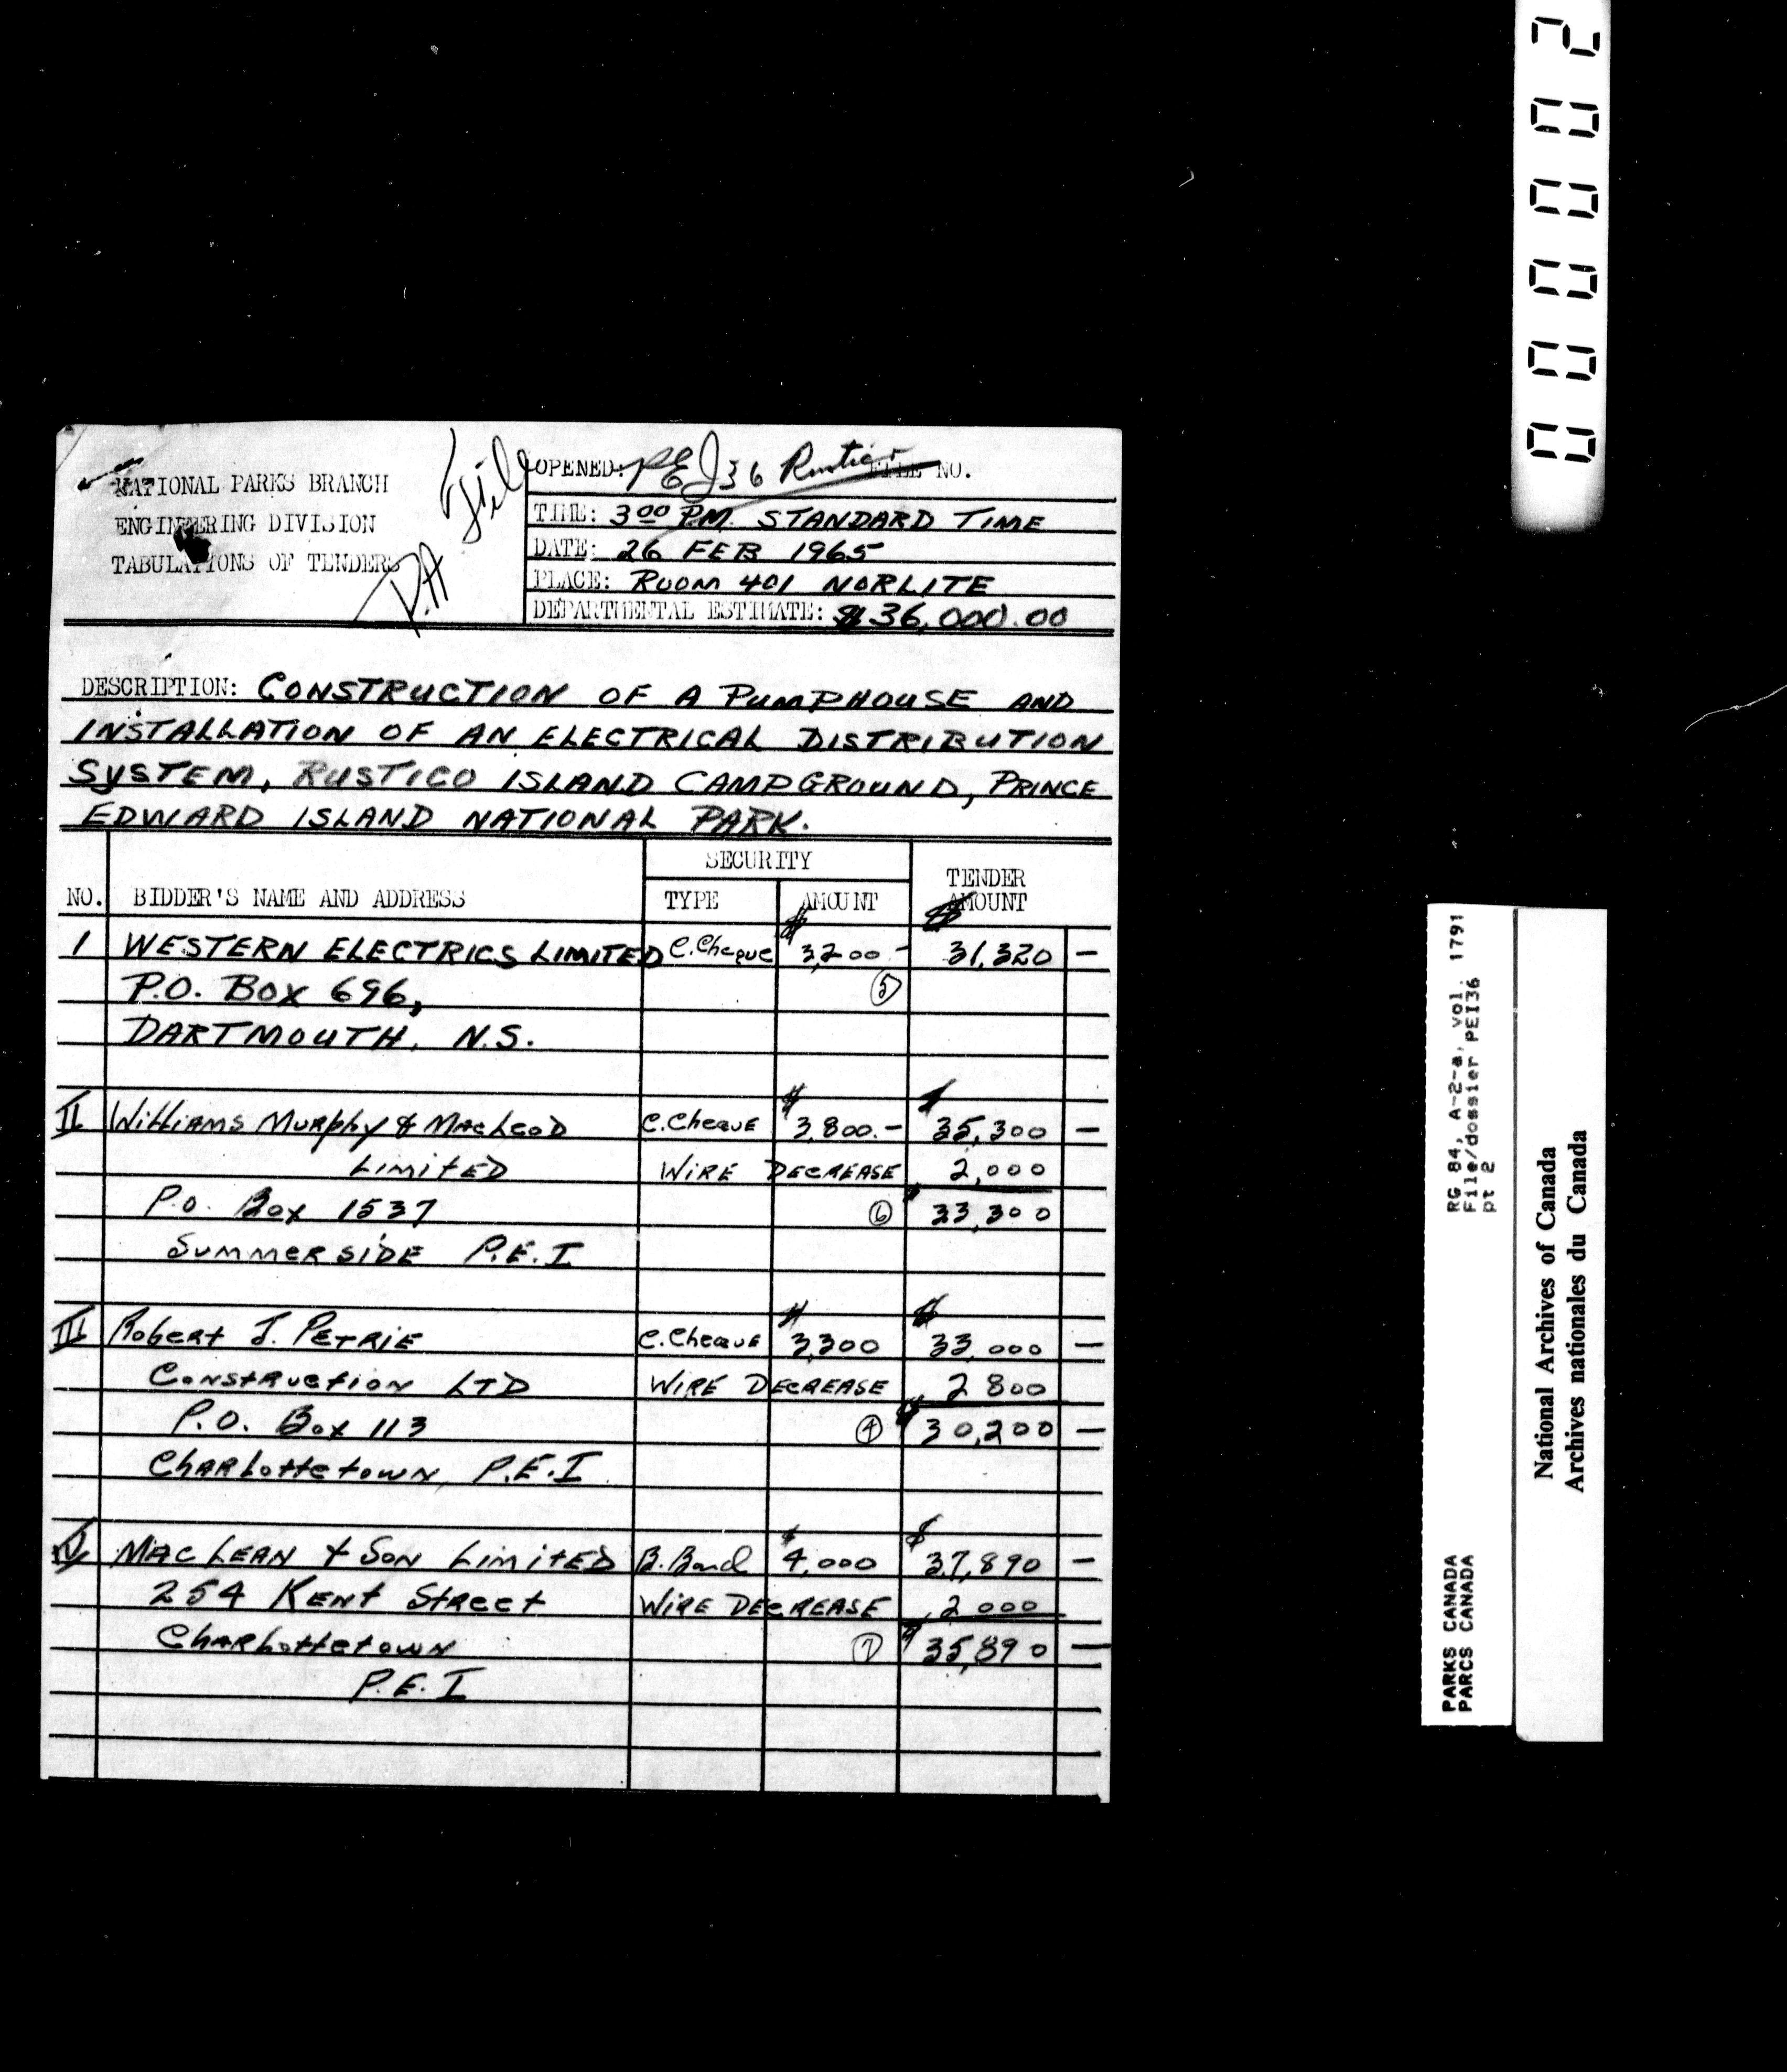 NATIONAL PARKS BRANCH
ENGINEERING DIVISION
TABULATIONS OF TENDERS
File
P.A
OPENED: PEI 36 Rustico FILE NO.
TIME: 3:00 P.M. STANDARD TIME
DATE: 26 FEB 1965
PLACE: ROOM 401 NORLITE
DEPARTMENTAL ESTIMATE: $36,000.00
DESCRIPTION: CONSTRUCTION OF A PUMPHOUSE AND
INSTALLATION OF AN ELECTRICAL DISTRIBUTION
SYSTEM, RUSTICO ISLAND CAMPGROUND, PRINCE
EDWARD ISLAND NATIONAL PARK.
SECURITY
TENDER
NO. BIDDER'S NAME AND ADDRESS TYPE AMOUNT AMOUNT
$ $
1 WESTERN ELECTRICS LIMITED C.Cheque 3,200 - 31,320 -
P.O. BOX 696, 5
DARTMOUTH, N.S.
$ $
II Williams Murphy & MacLeod C.Cheque 3,800.- 35,300 -
Limited WIRE DECREASE 2,000
P.O. Box 1537 6 $ 33,300
Summerside P.E.I
$ $
III Robert J. Petrie C.Cheque 3,300 33,000 -
Construction LTD WIRE DECREASE 2 800
P.O. Box 113 4 $ 30,200 -
Charlottetown P.E.I
$ $
IV MacLean & Son Limited B.Bond 4,000 37,890 -
254 Kent Street WIRE DECREASE 2 000
Charlottetown 7 $ 35,890 -
P.E.I
000002
RG 84, A-2-a, vol. 1791
File/dossier PEI36
pt 2
PARKS CANADA
PARCS CANADA
National Archives of Canada
Archives nationales du Canada